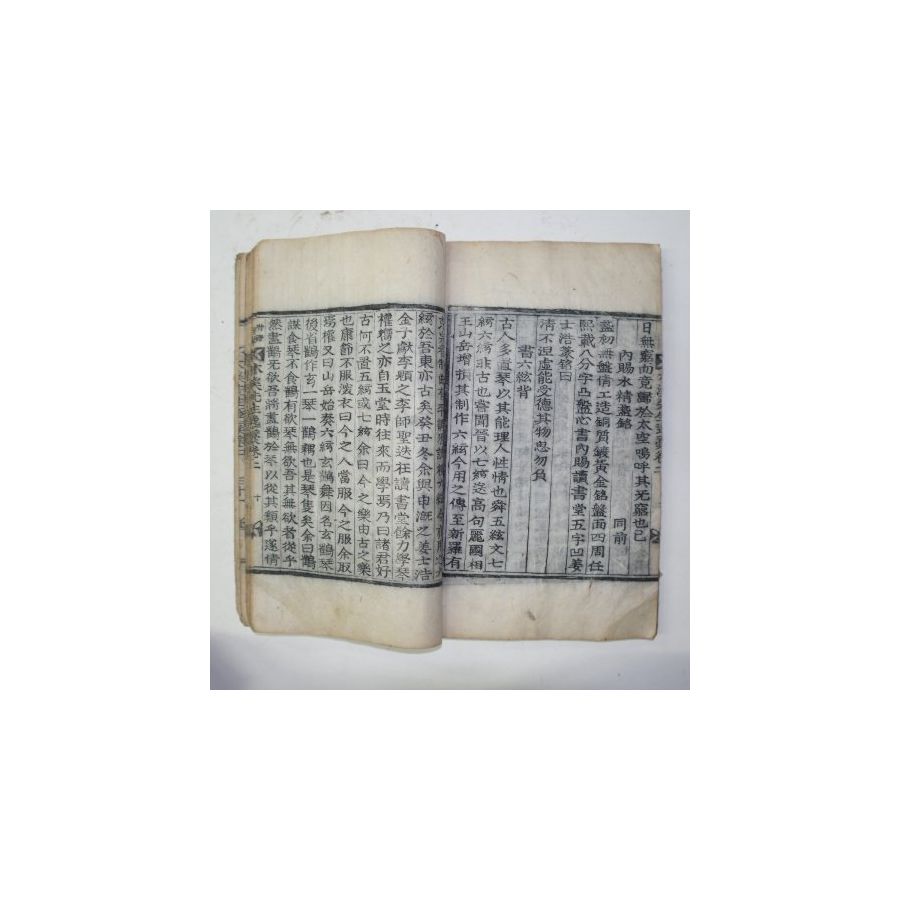 日無窮而竟歸於太空嗚呼其无窮也已
內賜水精盞銘 同前
盞初無盤倩工造銅質鍍黃金銘盤面四周任
熙載八分字凸盤心書內賜讀書堂五字凹姜
士浩篆銘曰
淸不涅虛能受德其物思勿負
書六絃背
古人多畜琴以其能理人性情也舜五絃文七
絃六絃非古也嘗聞晉以七絃送高句麗國相
王山岳增損其制作六絃今用之傳至新羅有
絃於吾東亦古矣癸丑冬余與申漑之姜士浩
金子獻李顆之李師聖迭在讀書堂餘力學琴
權嚮之亦自玉堂時往來而學焉乃曰諸君好
古何不置五絃或七絃余曰今之樂由古之樂
也康節不服深衣曰今之人當服今之服余取
焉權又曰山岳始奏六絃玄鶴舞因名玄鶴琴
後省鶴作玄一琴一鶴耦也是琴隻矣余曰鶴
謀食琴不食鶴有欲琴無欲吾其無欲者從乎
然畫鶴无欲吾將畫鶴於琴以從其類乎遂倩